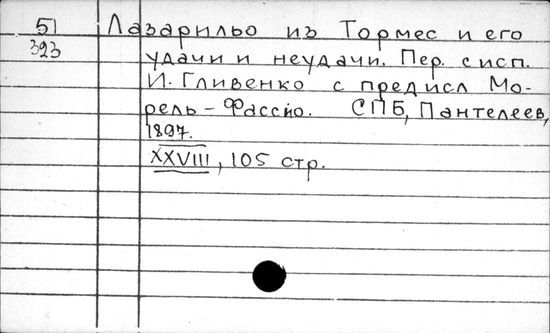 51 Лазарильо из Тормес и его
323 удачи и неудачи. Пер. с исп.
И. Гливенко с предисл Мо-
рель-Фассио. СПБ, Пантелеев,
1897.
XXVIII, 105 стр.